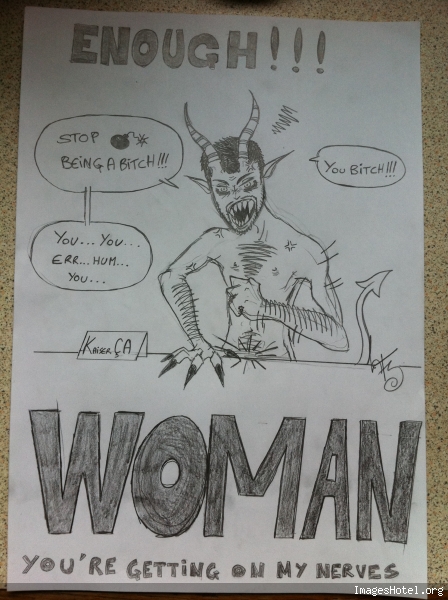 ENOUGH!!!
STOP
BEING A BITCH!!!
YOU BITCH!!!
YOU... YOU...
ERR... HUM...
YOU...
KAISER ÇA
WOMAN
YOU'RE GETTING ON MY NERVES
ImagesHotel.org